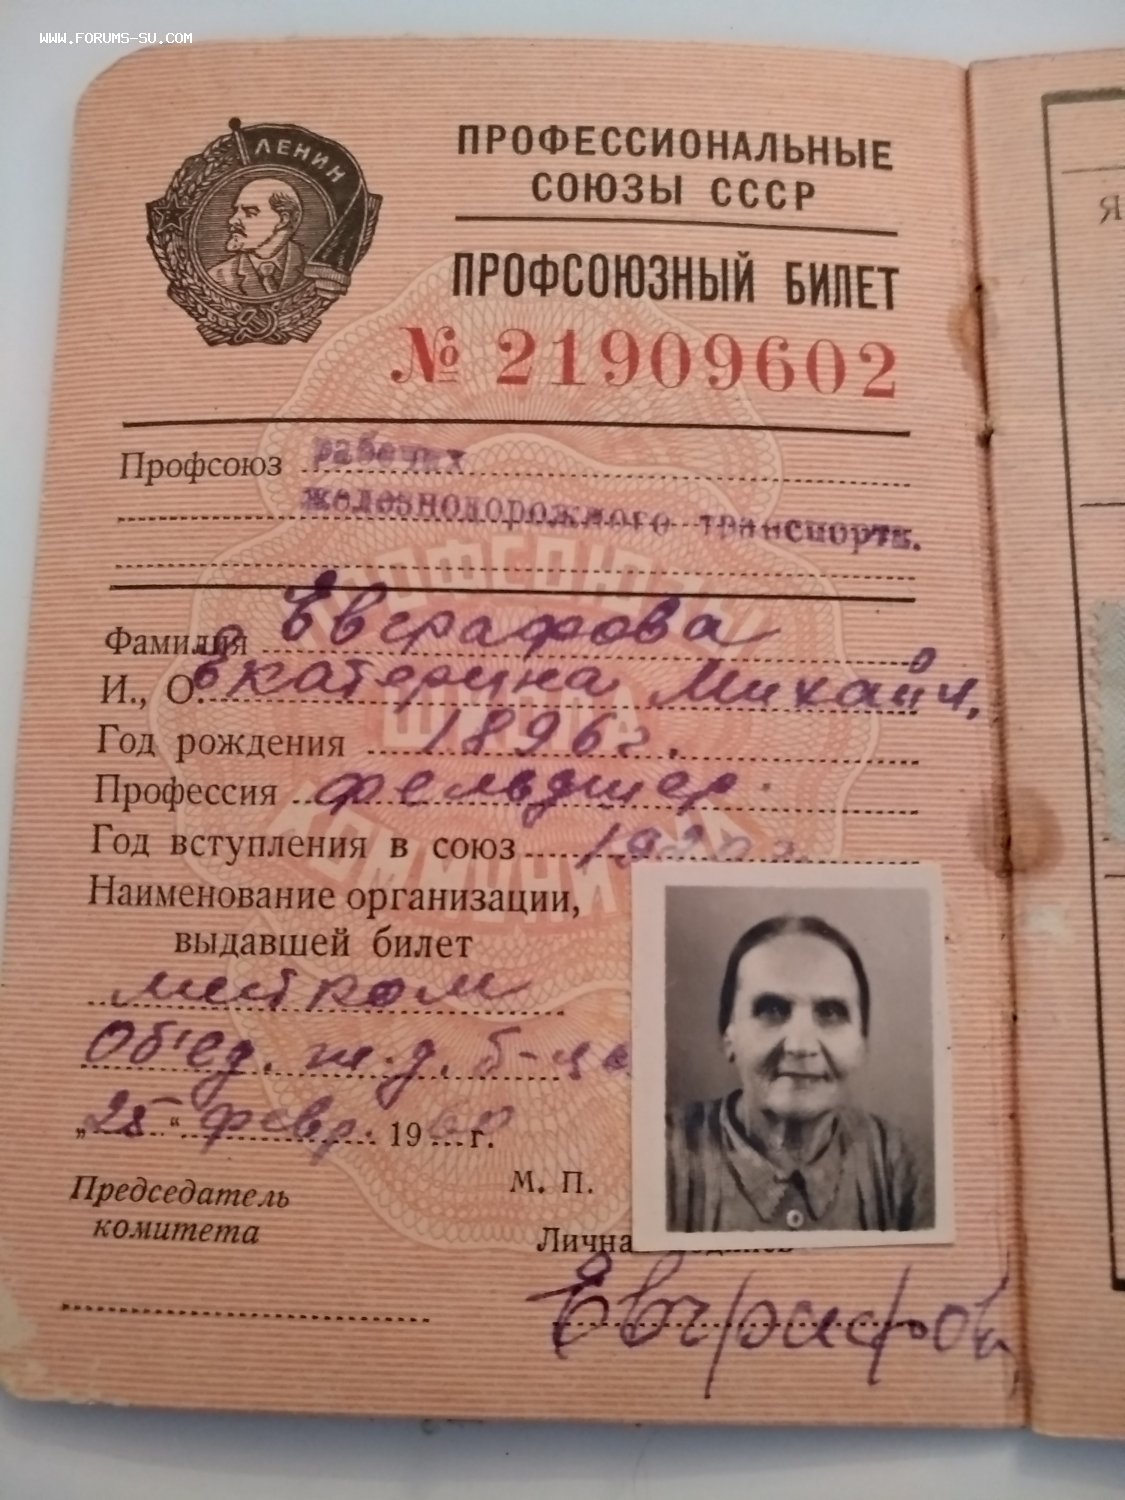 WWW.FORUMS-SU.COM
ЛЕНИН
ПРОФЕССИОНАЛЬНЫЕ
СОЮЗЫ СССР
ПРОФСОЮЗНЫЙ БИЛЕТ
№ 21909602
Профсоюз рабочих
железнодорожного транспорта.
ПРОФСОЮЗЫ
ШКОЛА
КОММУНИЗМА
Фамилия Евграфова
И., О. Екатерина Михайл.
Год рождения 1896 г.
Профессия фельдшер
Год вступления в союз
Наименование организации,
выдавшей билет
местком
Об'ед. ж.д. б-цы
„25“ февр. 1960 г.
Председатель
комитета
М. П.
Личная подпись
Евграфова
Я